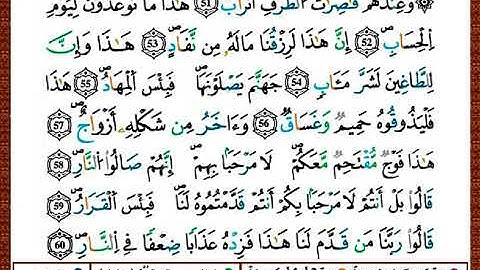 وَعِندَهُمْ قَٰصِرَٰتُ ٱلطَّرْفِ أَتْرَابٌ ۝٥٢ هَٰذَا مَا تُوعَدُونَ لِيَوْمِ
ٱلْحِسَابِ ۝٥٣ إِنَّ هَٰذَا لَرِزْقُنَا مَا لَهُۥ مِن نَّفَادٍ ۝٥٤ هَٰذَا وَإِنَّ
لِلطَّٰغِينَ لَشَرَّ مَـَٔابٍ ۝٥٥ جَهَنَّمَ يَصْلَوْنَهَا فَبِئْسَ ٱلْمِهَادُ ۝٥٦ هَٰذَا
فَلْيَذُوقُوهُ حَمِيمٌ وَغَسَاقٌ ۝٥٧ وَءَاخَرُ مِن شَكْلِهِۦ أَزْوَٰجٌ ۝٥٨
هَٰذَا فَوْجٌ مُّقْتَحِمٌ مَّعَكُمْ لَا مَرْحَبًۢا بِهِمْ إِنَّهُمْ صَالُوا۟ ٱلنَّارِ ۝٥٩
قَالُوا۟ بَلْ أَنتُمْ لَا مَرْحَبًۢا بِكُمْ أَنتُمْ قَدَّمْتُمُوهُ لَنَا فَبِئْسَ ٱلْقَرَارُ ۝٦٠
قَالُوا۟ رَبَّنَا مَن قَدَّمَ لَنَا هَٰذَا فَزِدْهُ عَذَابًا ضِعْفًا فِى ٱلنَّارِ